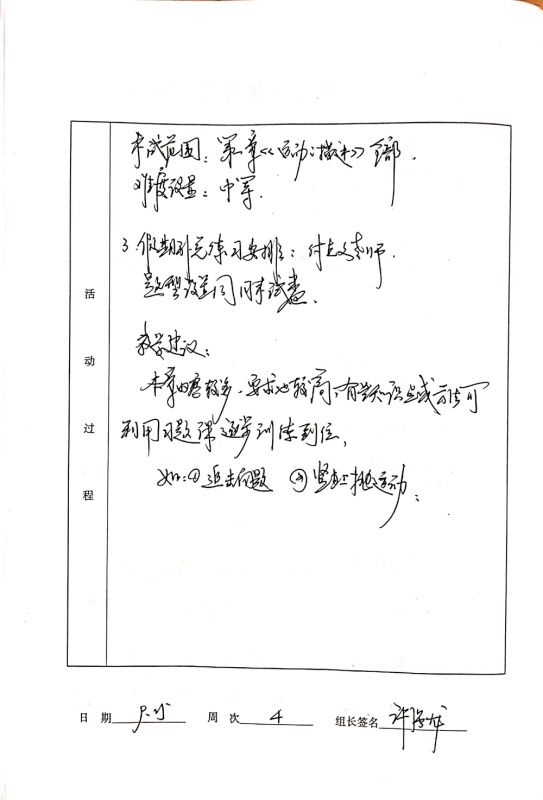 考试范围：第一章《《运动的描述》》全部．
难度设置：中等．
3. 假期补充练习安排：付老师．
题型设置同周末试卷．
教学建议：
本章内容较多，要求也较高，有些知识点或方法可
利用习题课逐步训练到位，
如：① 追击问题 ② 竖直上抛运动；
活动过程
日 期 周 次 4 组长签名